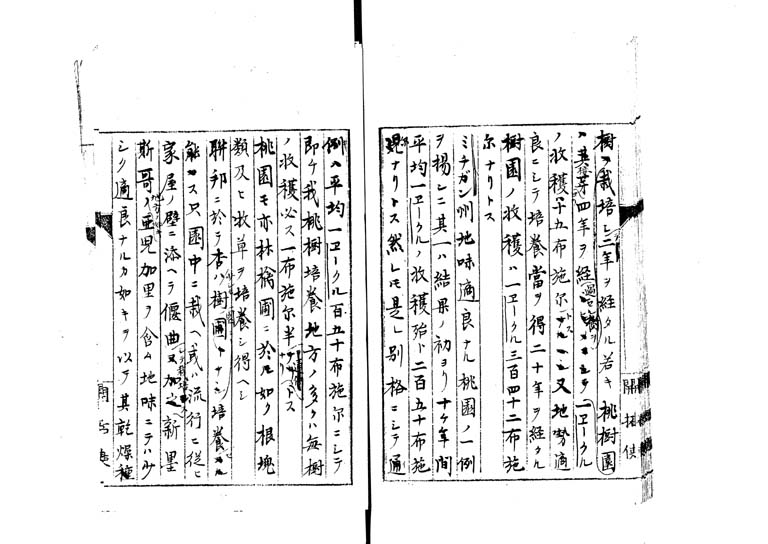 樹ヲ栽培シ二年ヲ経タル若キ桃樹園
ハ其芽四年ヲ経一ヱークル
ノ収穫平五布施尓又地勢適
良ニシテ培養當ヲ得二十年ヲ経タル
樹園ノ収穫ハ一ヱークル三百四十二布施
尓ナリトス
ミチガン州地味適良ナル桃園ノ一例
ヲ揚レニ其一ハ結果ノ初ヨリ十ケ年間
平均一ヱークルノ收穫殆ト二百五十布施
ナリトス然レ𪜈是レ別格ニシテ通
例ハ平均一ヱークル百五十布施尓ニシテ
即チ我桃樹培養地方ノ多クハ毎樹
ノ收穫必ス一布施尓半トス
桃園モ亦林檎圃ニ於ル如ク根塊
類及ヒ牧草ヲ培養シ得ヘシ
聯邦ニ於テ杏ハ樹培養
能ス只園中ニ栽ヘ或ハ流行ニ従ヒ
家屋ノ壁ニ添ヘテ偃曲新里
斯哥ノ亜児加里ヲ含ム地味ニテハ少
シク適良ナルカ如キヲ以テ其乾燥種
開拓使